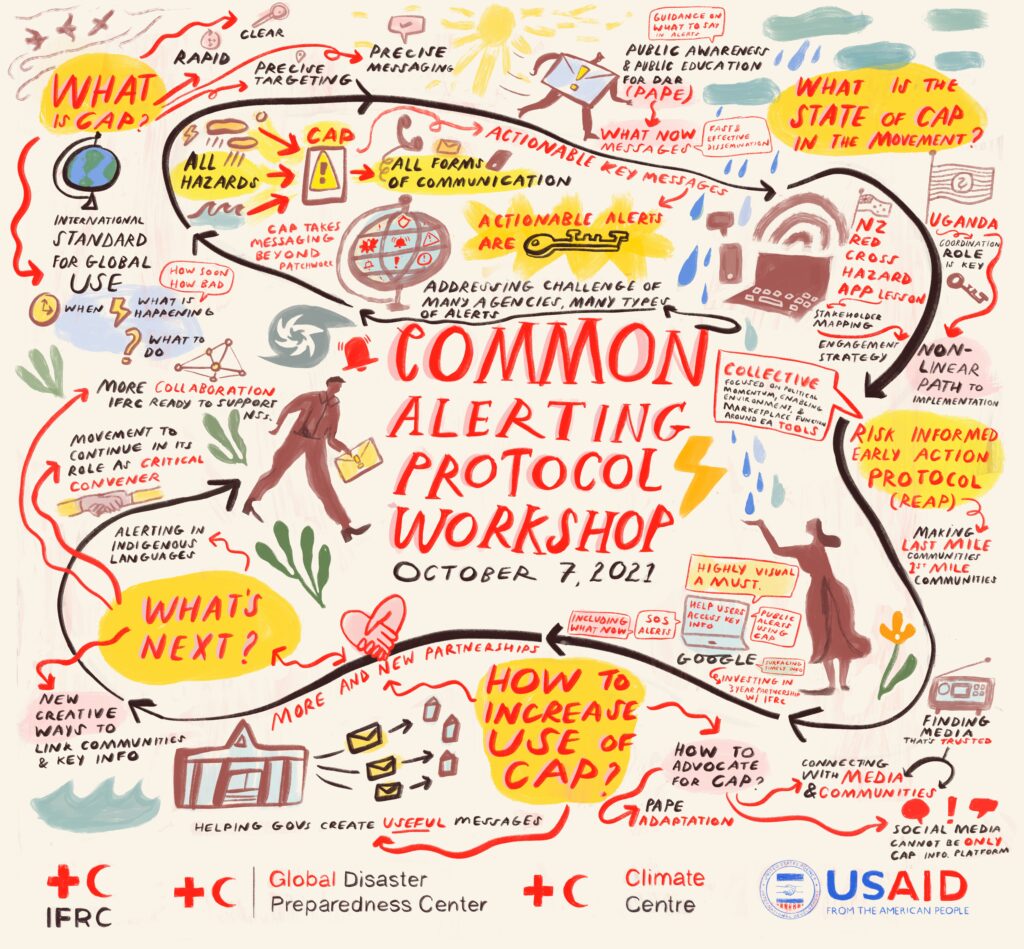 WHAT
IS CAP?
CLEAR
RAPID
PRECISE
TARGETING
PRECISE
MESSAGING
GUIDANCE ON
WHAT TO SAY
IN ALERTS
PUBLIC AWARENESS
& PUBLIC EDUCATION
FOR DRR
(PAPE)
WHAT NOW
MESSAGES
FAST &
EFFECTIVE
DISSEMINATION
WHAT IS THE
STATE OF CAP
IN THE MOVEMENT?
INTERNATIONAL
STANDARD
FOR GLOBAL
USE
HOW SOON
HOW BAD
WHEN
WHAT IS
HAPPENING
WHAT TO
DO
ALL
HAZARDS
CAP
ALL FORMS
OF COMMUNICATION
ACTIONABLE KEY MESSAGES
CAP TAKES
MESSAGING
BEYOND
PATCHWORK
ACTIONABLE ALERTS
ARE
ADDRESSING CHALLENGE OF
MANY AGENCIES, MANY TYPES
OF ALERTS
NZ
RED
CROSS
HAZARD
APP LESSON
STAKEHOLDER
MAPPING
ENGAGEMENT
STRATEGY
UGANDA
COORDINATION
ROLE IS
KEY
NON-
LINEAR
PATH TO
IMPLEMENTATION
COMMON
ALERTING
PROTOCOL
WORKSHOP
OCTOBER 7, 2021
COLLECTIVE
FOCUSED ON POLITICAL
MOMENTUM, ENABLING
ENVIRONMENT, &
MARKETPLACE FUNCTION
AROUND EA TOOLS
RISK INFORMED
EARLY ACTION
PROTOCOL
(REAP)
MAKING
LAST MILE
COMMUNITIES
1ST MILE
COMMUNITIES
MORE COLLABORATION
IFRC READY TO SUPPORT
NSs.
MOVEMENT TO
CONTINUE IN ITS
ROLE AS CRITICAL
CONVENER
ALERTING IN
INDIGENOUS
LANGUAGES
WHAT'S
NEXT?
NEW
CREATIVE
WAYS TO
LINK COMMUNITIES
& KEY INFO
MORE AND NEW PARTNERSHIPS
HIGHLY VISUAL
A MUST
INCLUDING
WHAT NOW
SOS
ALERTS
HELP USERS
ACCESS KEY
INFO
PUBLIC
ALERTS
USING
CAP
GOOGLE
SURFACING
SIMPLE INFO
INVESTING IN
3 YEAR PARTNERSHIP
W/ IFRC
HOW TO
INCREASE
USE OF
CAP?
HELPING GOVS CREATE USEFUL MESSAGES
HOW TO
ADVOCATE
FOR CAP?
PAPE
ADAPTATION
FINDING
MEDIA
THAT'S TRUSTED
CONNECTING
WITH MEDIA
& COMMUNITIES
!
SOCIAL MEDIA
CANNOT BE ONLY
CAP INFO. PLATFORM
IFRC
Global Disaster
Preparedness Center
Climate
Centre
USAID
FROM THE AMERICAN PEOPLE